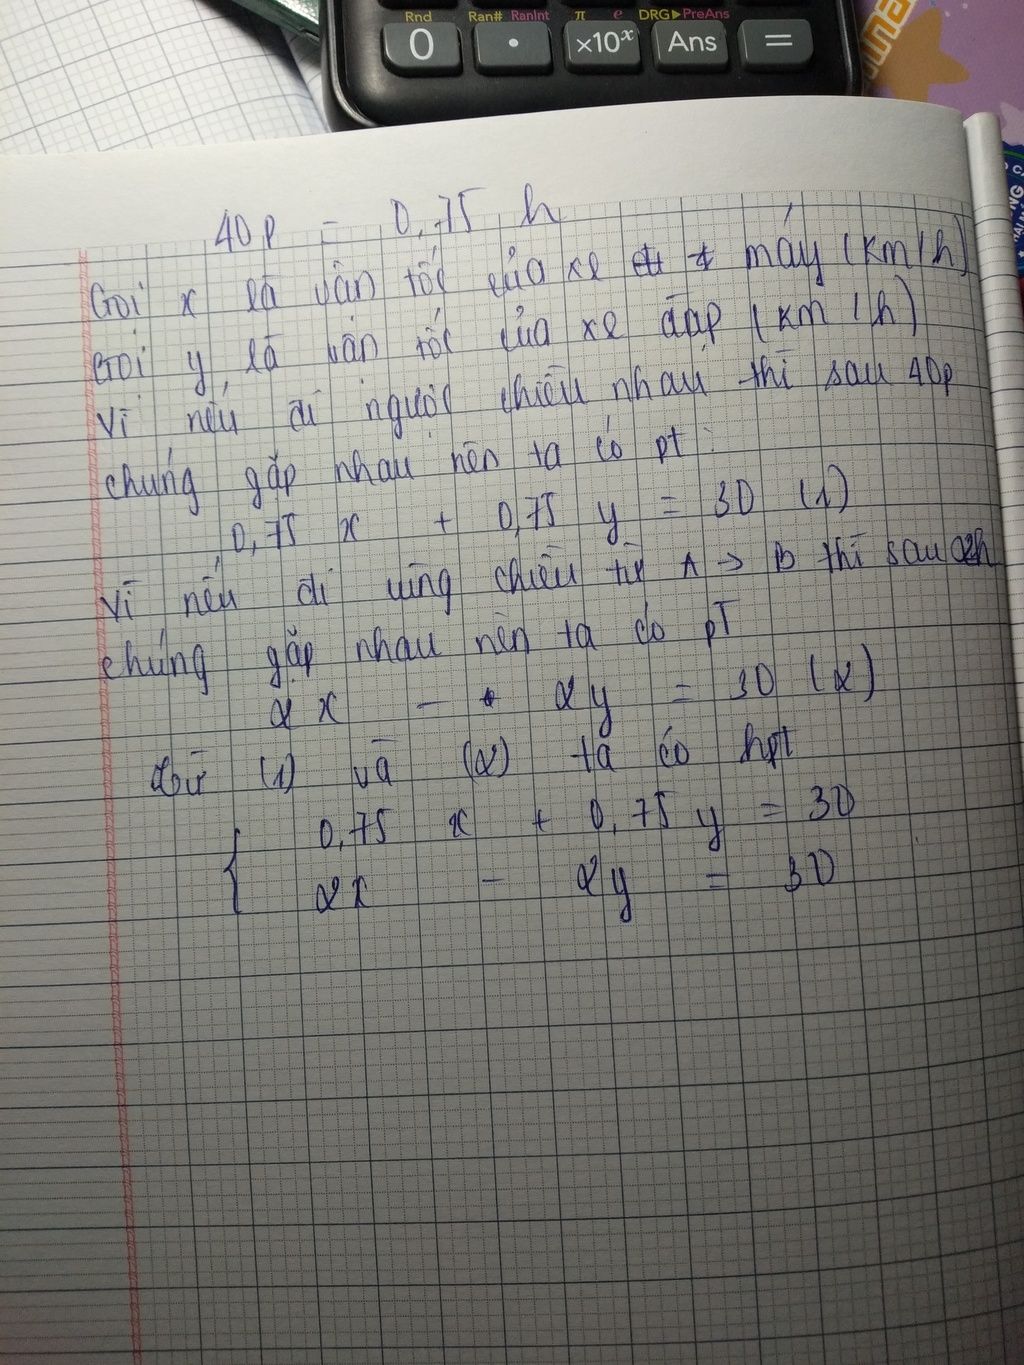 Rnd Ran# RanInt π e DRG▶PreAns
0 • ×10ˣ Ans =
40p = 0,75 h
Gọi x là vận tốc của xe máy (km/h)
Gọi y là vận tốc của xe đạp (km/h)
Vì nếu đi ngược chiều nhau thì sau 40p
chúng gặp nhau nên ta có pt:
0,75 x + 0,75 y = 30 (1)
Vì nếu đi cùng chiều từ A → B thì sau 2h
chúng gặp nhau nên ta có pT
2x - 2y = 30 (2)
Từ (1) và (2) ta có hpt
0,75 x + 0,75 y = 30
2x - 2y = 30